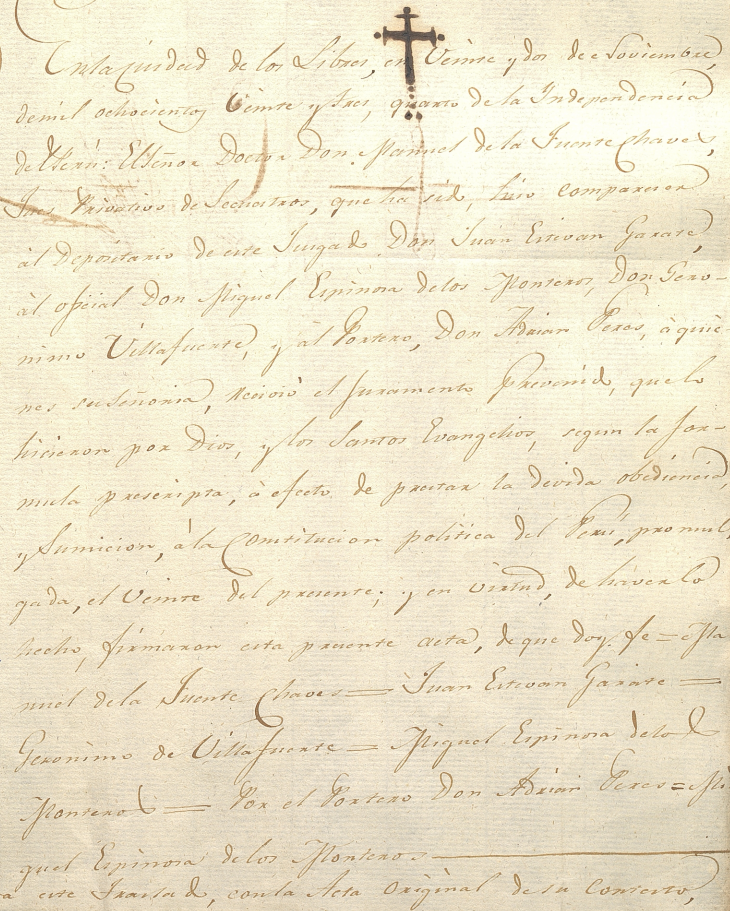 En la ciudad de los Libres, en Veinte y dos de Noviembre,
de mil ochocientos Veinte y tres, quarto de la Independencia
del Perú: El Señor Doctor Don Manuel de la Fuente Chaves,
Jues Privativo de Secuestros, que ha sido, hiso comparecer
àl Depositario de este Juzgado Don Juan Estevan Garate,
àl oficial Don Miguel Espinosa delos Monteros, Don Gero-
nimo Villafuerte, y àl Portero, Don Adrian Peres, à quie-
nes su Señoria, recivió el Juramento Prevenido, que lo
hicieron por Dios, y los Santos Evangelios, segun la for-
mula prescripta, à efecto de prestar la devida obediencia,
y Sumicion, à la Constitucion politica del Perú, promul-
gada, el Veinte del presente; y en virtud, de haverlo
hecho, firmaron esta presente acta, de que doy fe = Ma
nuel dela Fuente Chaves = Juan Estevan Garate =
Geronimo de Villafuerte = Miguel Espinosa delos
Monteros = Por el Portero Don Adrian Peres = Mi
guel Espinosa delos Monteros
este Traslado, con la Acta Original de su Contesto,